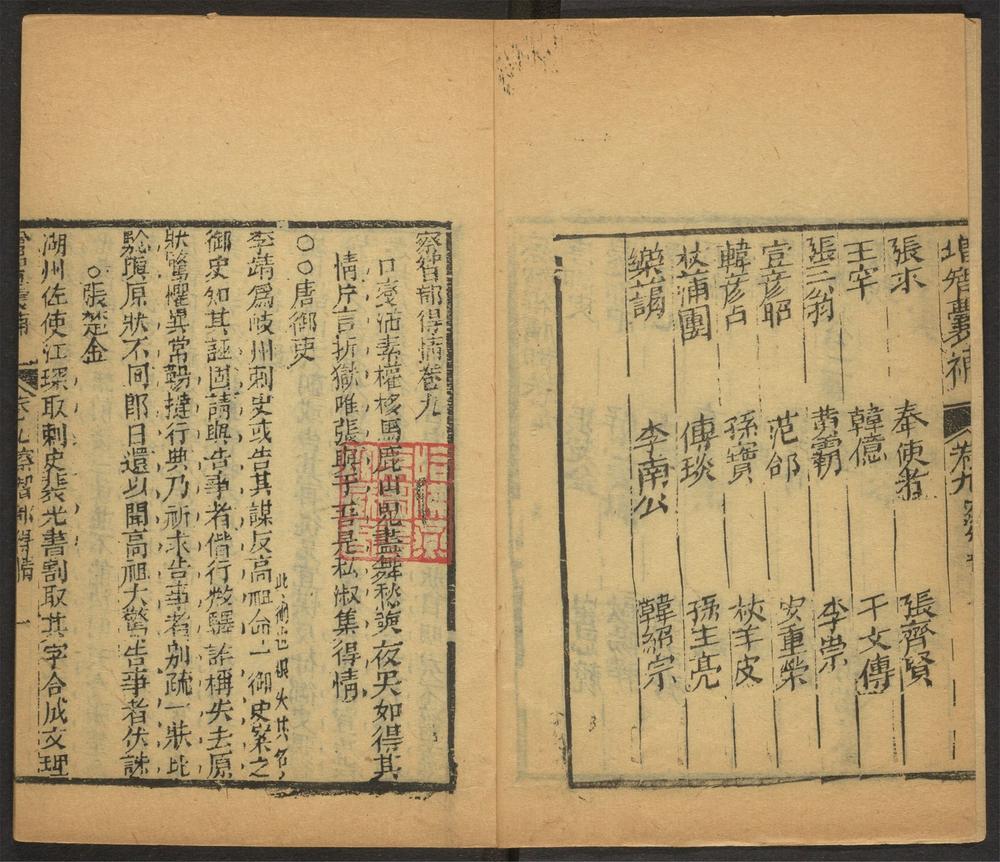 增智囊補 卷九 察智
張咏 奉使者 張齊賢
王罕 韓億 干文傳
張三翁 黃霸 李崇
宣彥昭 范郃 安重榮
韓彥古 孫寶 拷羊皮
杖蒲團 傅琰 孫主亮
樂藹 李南公 韓紹宗
察智部得情卷九
口變淄素權移馬鹿山鬼晝舞愁魂夜哭如得其
情片言折獄唯張與于吾是私淑集得情
〇〇唐御史
李靖爲岐州刺史或告其謀反高祖命一御史案之
此御史恨失其名
御史知其誣固請與告事者偕行數驛詐稱失去原
狀驚懼異常鞭撻行典乃祈求告事者別疏一狀比
驗與原狀不同卽日還以聞高祖大驚告事者伏誅
〇張楚金
湖州佐使江琛取刺史裴光書割取其字合成文理
卷九察智部得情 一